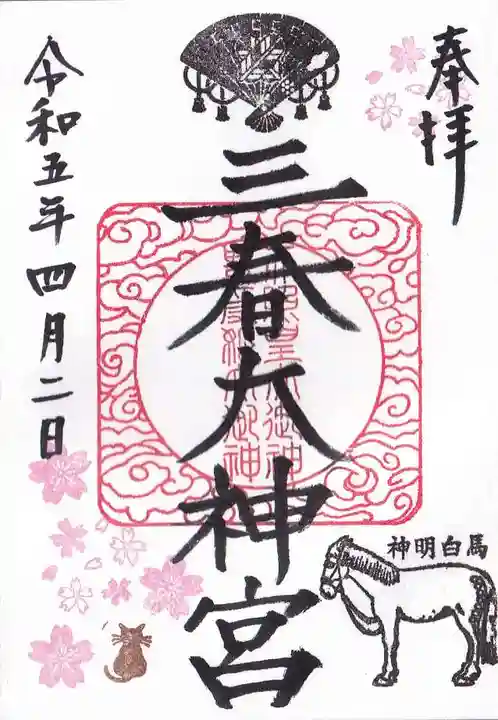 奉拝
三春大神宮
令和五年四月二日
神明白馬